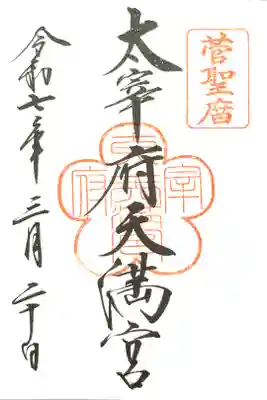 菅聖暦
太宰府天満宮
令和七年三月二十日